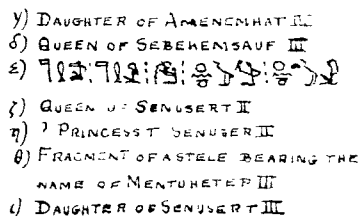 γ) DAUGHTER OF AMENEMHAT III
δ) QUEEN OF SEBEKEMSAUF III
ε)
ζ) QUEEN OF SENUSERT II
η) ? PRINCESS T SENUSER II
θ) FRAGMENT OF A STELE BEARING THE
NAME OF MENTUHETEP III
ι) DAUGHTER OF SENUSERT III